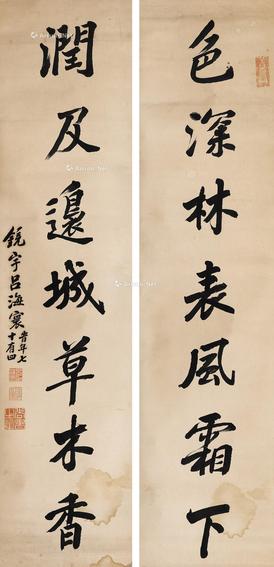 色深林表風霜下
潤及邊城草木香
鏡宇呂海寰
時年七
十有四